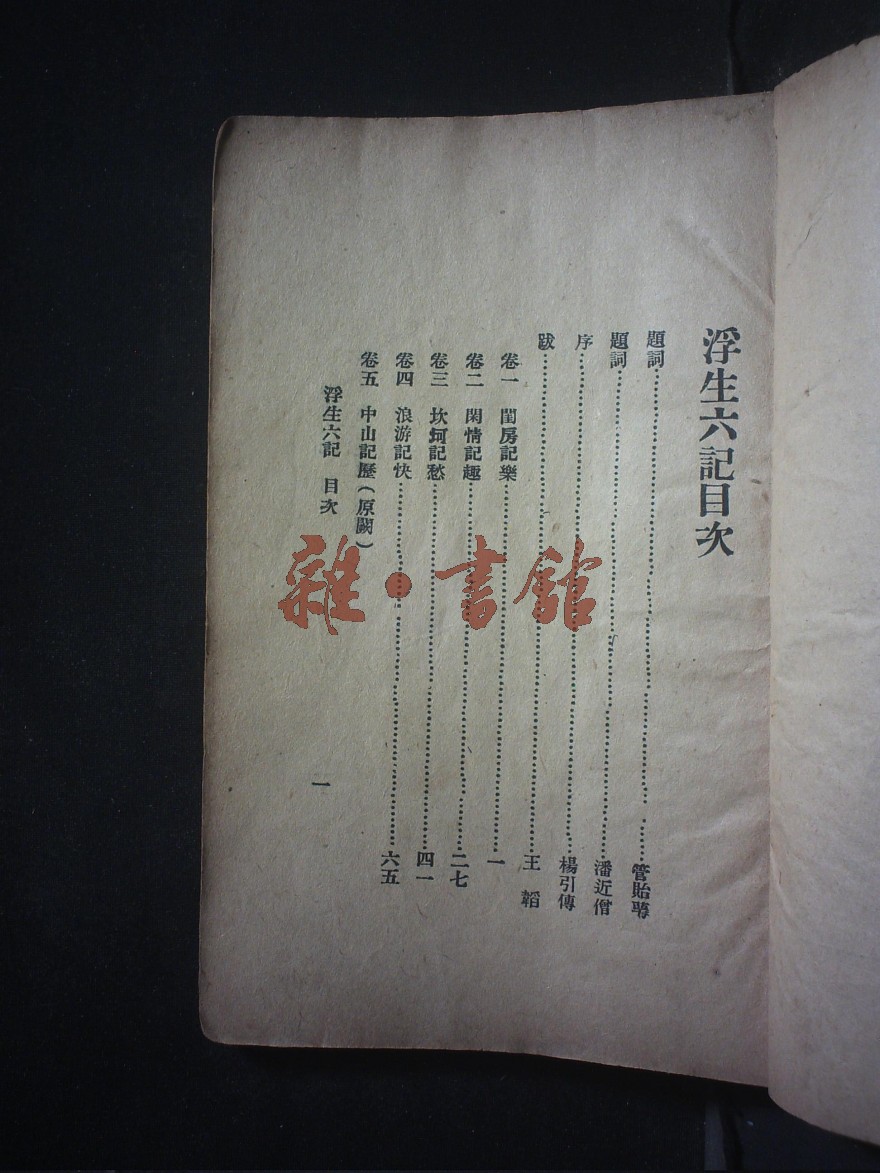 浮生六記目次
題詞……管貽萼
題詞……潘近僧
序……楊引傳
跋……王 韜
卷一 閨房記樂……一
卷二 閑情記趣……二七
卷三 坎坷記愁……四一
卷四 浪游記快……六五
卷五 中山記歷(原闕)
浮生六記 目次
一
雜·書館